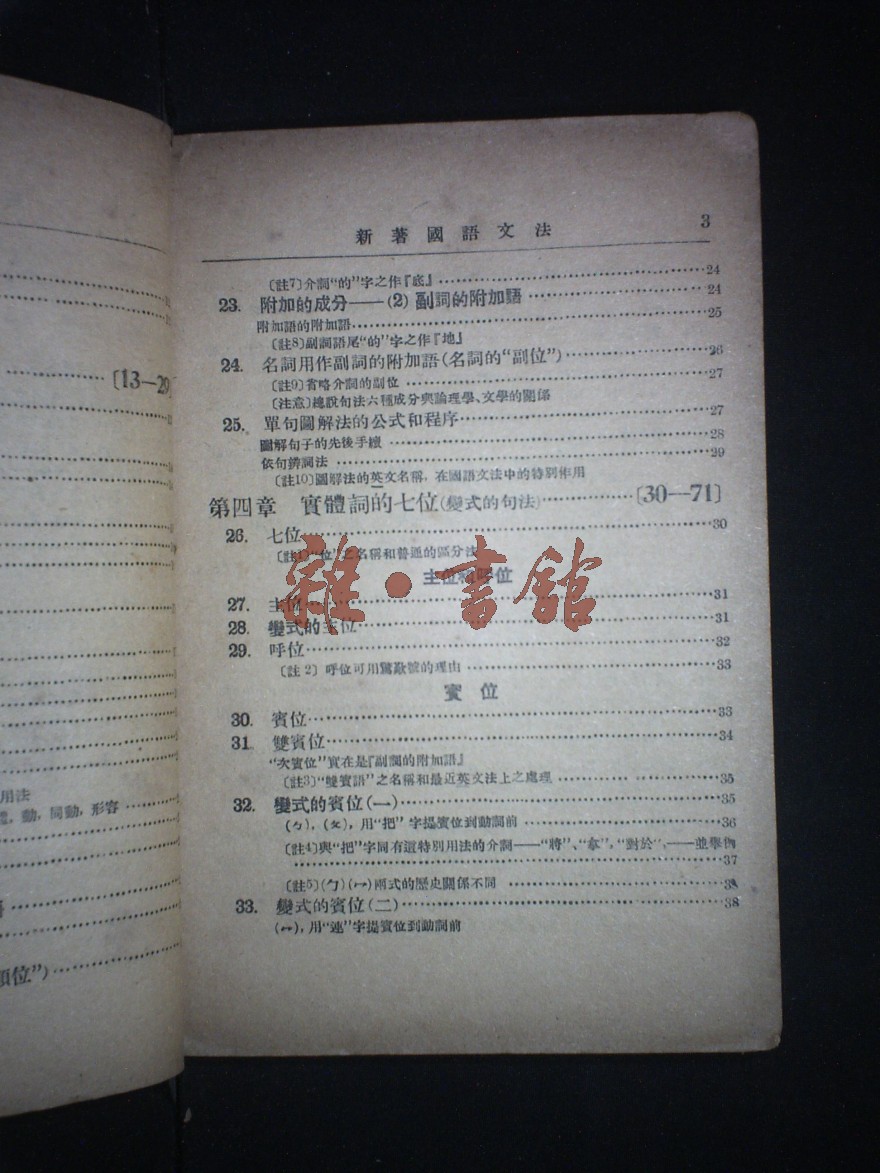 新著國語文法 3
〔註7〕介詞“的”字之作『底』 24
23. 附加的成分——(2) 副詞的附加語 24
附加語的附加語 25
〔註8〕副詞語尾“的”字之作『地』
24. 名詞用作副詞的附加語(名詞的“副位”) 26
〔註9〕省略介詞的副位 27
〔注意〕總說句法六種成分與論理學、文學的關係
25. 單句圖解法的公式和程序 27
圖解句子的先後手續 28
依句辨詞法 29
〔註10〕圖解法的英文名稱，在國語文法中的特別作用
第四章 實體詞的七位(變式的句法) 〔30—71〕
26. 七位 30
〔註1〕“位”之名稱和普通的區分法
主位和呼位
27. 主位 31
28. 變式的主位 31
29. 呼位 32
〔註2〕呼位可用驚歎號的理由 33
賓位
30. 賓位 33
31. 雙賓位 34
“次賓位”實在是『副詞的附加語』
〔註3〕“雙賓語”之名稱和最近英文法上之處理 35
32. 變式的賓位(一) 35
(ㄅ)，(ㄆ)，用“把”字提賓位到動詞前 36
〔註4〕與“把”字同有這特別用法的介詞——“將”、“拿”，“對於”，——並舉例
37
〔註5〕(ㄅ)(ㄇ)兩式的歷史關係不同 38
33. 變式的賓位(二) 38
(ㄇ)，用“連”字提賓位到動詞前
〔13—29〕
用法
，動，同動，形容
位”)
雜·書館